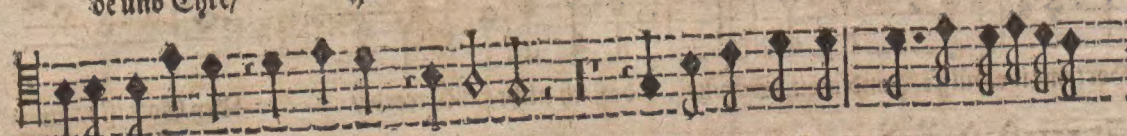 de und Ehre/